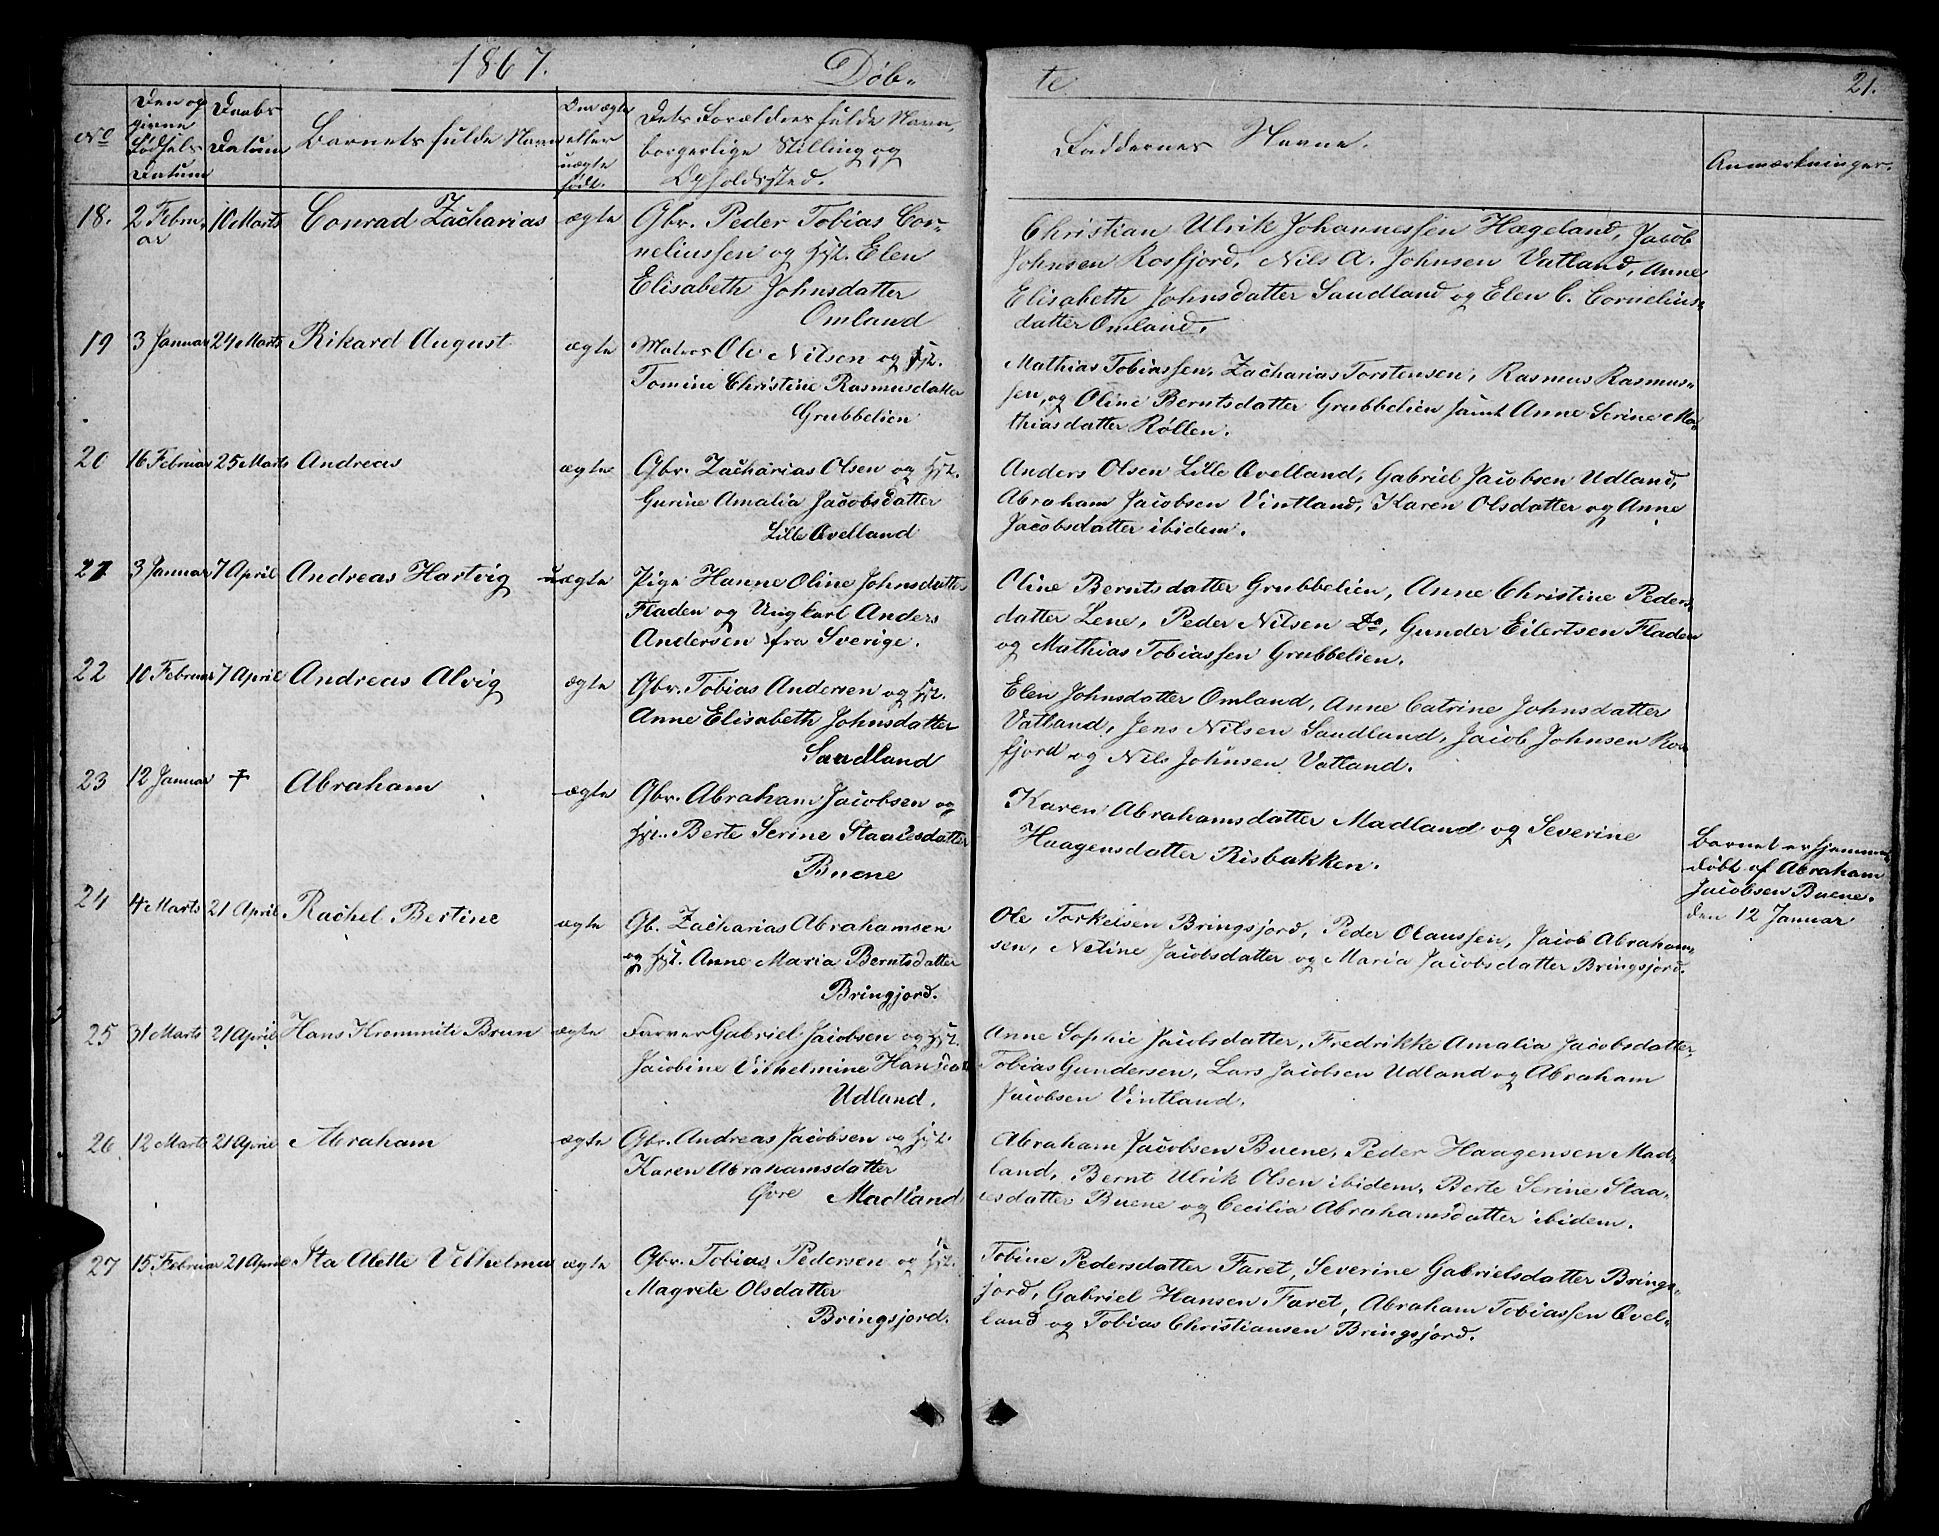 1867. Døb-
te 21.
No
Den op
givne
Fødsels
Datum
Daabs
Datum
Barnets fulde Navn
Om ægte
eller
uægte
født.
Dets Forældres fulde Navn,
borgerlige Stilling og
Opholdssted.
Faddernes Navne.
Anmærkninger.
18. 2 Febru-
ar 10 Marts Conrad Zacharias ægte
Gbr. Peder Tobias Cor-
neliussen og Hst. Elen
Elisabeth Johnsdatter
Omland
Christian Ulrik Johannessen Hægeland, Jacob
Johnsen Rosfjord, Nils A. Johnsen Vatland, Anne
Elisabeth Johnsdatter Sandland og Elen C. Cornelius-
datter Omland.
19 3 Januar 24 Marts Rikard August ægte
Matros Ole Nilsen og Hst.
Tomine Christine Rasmusdatter
Grubbelien
Mathias Tobiassen, Zacharias Torstensen, Rasmus Rasmus-
sen, og Oline Berntsdatter Grubbelien samt Anne Serine Ma-
thiasdatter Røllen.
20 16 Februar 25 Marts Andreas ægte
Gbr. Zacharias Olsen og Hst.
Gurine Amalia Jacobsdatter
Lille Øvelland
Anders Olsen Lille Øvelland, Gabriel Jacobsen Udland,
Abraham Jacobsen Vintland, Karen Olsdatter og Anne
Jacobsdatter ibidem.
21 3 Januar 7 April Andreas Hartvig uægte
Pige Hanne Oline Johnsdatter
Fladen og Ungkarl Anders
Andersen fra Sverige.
Oline Berntsdatter Grubbelien, Anne Christine Peders-
datter Lene, Peder Nilsen Do, Gunder Eilertsen Fladen
og Mathias Tobiassen Grubbelien.
22 10 Februar 7 April Andreas Alvig ægte
Gbr. Tobias Andersen og Hst.
Anne Elisabeth Johnsdatter
Sandland
Elen Johnsdatter Omland, Anne Catrine Johnsdatter
Vatland, Jens Nilsen Sandland, Jacob Johnsen Ros-
fjord og Nils Johnsen Vatland.
23 12 Januar † Abraham ægte
Gbr. Abraham Jacobsen og
Hst. Berte Serine Staalesdatter
Buene
Karen Abrahamsdatter Madland og Severine
Haagensdatter Risbakken.
Barnet er hjemme
døbt af Abraham
Jacobsen Buene.
den 12 Januar
24 4 Marts 21 April Rachel Bertine ægte
Gb. Zacharias Abrahamsen
og Hst. Anne Maria Berntsdatter
Bringjord.
Ole Torkelsen Bringsjord, Peder Olaussen, Jacob Abraham-
sen, Netine Jacobsdatter og Maria Jacobsdatter Bringsjord.
25 31 Marts 21 April Hans Brun ægte
Farver Gabriel Jacobsen og Hst.
Jacobine Vilhelmine Hansdatt
Udland.
Anne Sophie Jacobsdatter, Fredrikke Amalia Jacobsdatter,
Tobias Gundersen, Lars Jacobsen Udland og Abraham
Jacobsen Vintland.
26 12 Marts 21 April Abraham ægte
Gbr. Andreas Jacobsen og Hst.
Karen Abrahamsdatter
Øvre Madland
Abraham Jacobsen Buene, Peder Haagensen Mad-
land, Bernt Ulrik Olsen ibidem, Berte Serine Staa-
lesdatter Buene og Cecilia Abrahamsdatter ibidem.
27 15 Februar 21 April Ita Alette Velhelmine ægte
Gbr. Tobias Pedersen og Hst.
Magrete Olsdatter
Bringsjord.
Tobine Pedersdatter Faret, Severine Gabrielsdatter Brings-
jord, Gabriel Hansen Faret, Abraham Tobiassen Øvel-
land og Tobias Christiansen Bringsjord.